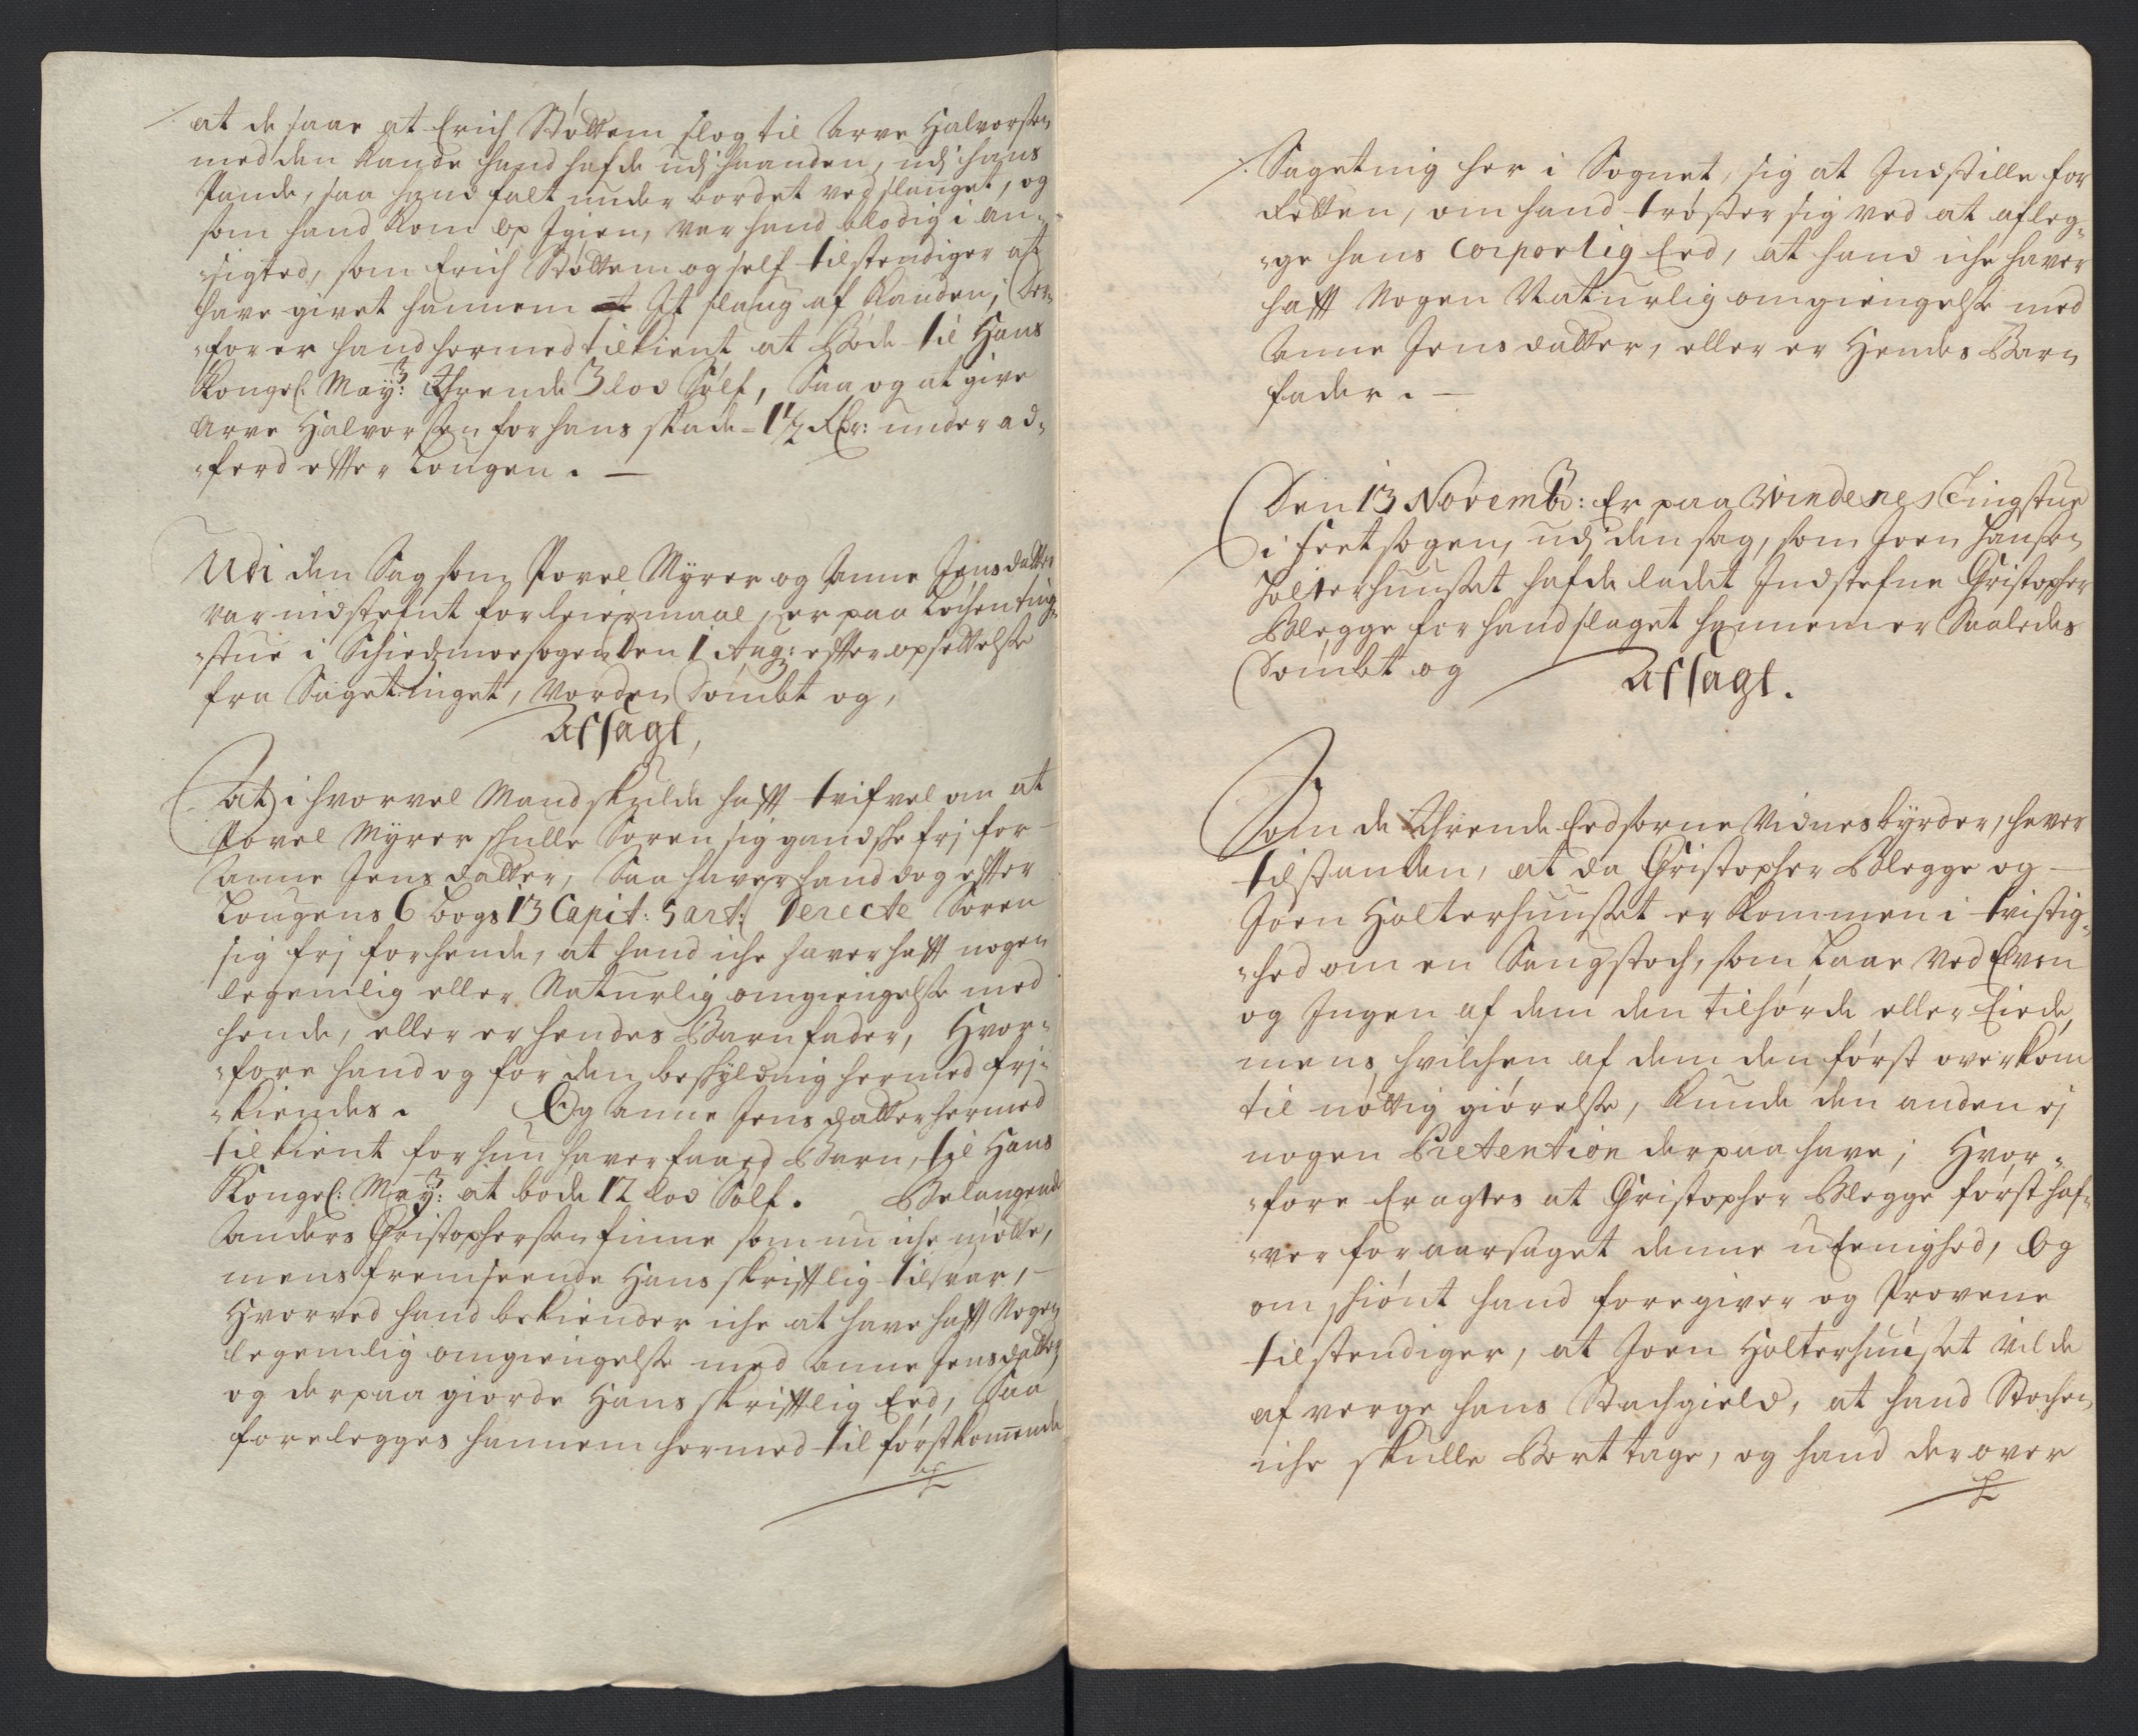 at de saae at Erich Støttem slog til Arve Halvorsen
med den Kande hand hafde udj haanden, udj hans
Pande, saa hand falt under bordet ved slauget, og
som hand kom op Igien, var hand blodig i an¬
sigted, som Erich Støttem og self tilstendiger at
have givet hannem It slaug af Kanden, Der¬
for er hand hermed tilkient at Bøde til Hans
Kongel: May: Thrende 3 lod Sølf, Saa og at give
Arve Halvorsen for hans skade - 1½ Rdr: under ad¬
ferd efter Lougen. —
Udi den Sag som Povel Myrer og Anne Jensdatter
var indstefnt for leiermaal, er paa Løchen ting¬
stue i Schiedmoe sogen den 1 Aug: efter opsettelse
fra Sagetinget, Vorden Dømbt og,
Afsagt,
At i hvorvel Mand skulde hafft tvifvel om at
Povel Myrer skulle Soren sig gandske frj for
Anne Jens datter, Saa haver hand dog efter
Lougens 6 bogs 13 Capit: 5 art: Derecte Soren
sig frj for hende, at hand iche haver hafft nogen
legemlig eller Naturlig omgiengelse med
hende, eller er hendes Barnfader, Hvor¬
fore hand og for den beskyldnig hermed frj¬
kiendes. Og Anne Jens datter hermed
tilkient for hun haver faaed Barn, til Hans
Kongel: May: at bøde 12 lod Sølf. Belangende
Anders Christophersen finne som nu iche møtte,
mens fremseende Hans skrifftlig tilsvar,
Hvorved hand bekiender iche at have hafft Nogen
legemlig omgiengelse med Anne Jensdatter
og derpaa giorde Hans skrifftlig Eed, Saa
forelegges hannem hermed til førstkommende
Sagetinig her i Sognet, sig at Indstille for
Retten, om hand trøster sig ved at afleg¬
ge hans Corporlig Eed, at hand iche haver
hafft Nogen Naturlig omgiengelse med
Anne Jens datter, eller er Hendes Barn
fader. —
Den 13 Novemb: Er paa Vindenes Tingstue
i sogen, udj den sag, som Joen Hansen
Holterhuuset hafde ladet Indstefne Christopher
Blegge for hand slaget hannem er Saaledes
Dømbt og Afsagt.
Som de Threnede Eedsorne Vidnesbyrder, haver
tilstanden, at da Christopher Blegge og
Joen Holterhuuset er kommen i tvistig¬
hed om en Saugstoch, som laae ved Elven
og Ingen af dem den tilhørde eller Eiede,
mens hvilchen af dem den først overkom
til nøttig giørelse, kunde den anden ej
nogen Pretention derpaa have; Hvor¬
fore Eragtes at Christopher Blegge først haf¬
ver foraarsaget denne uEenighed, Og
om skiønt hand foregiver og Provene
tilstendiger, at Joen Holterhuuset vilde
afverge hans Stachgield, at hand Stochen
iche skulle Bort tage, og hand derover